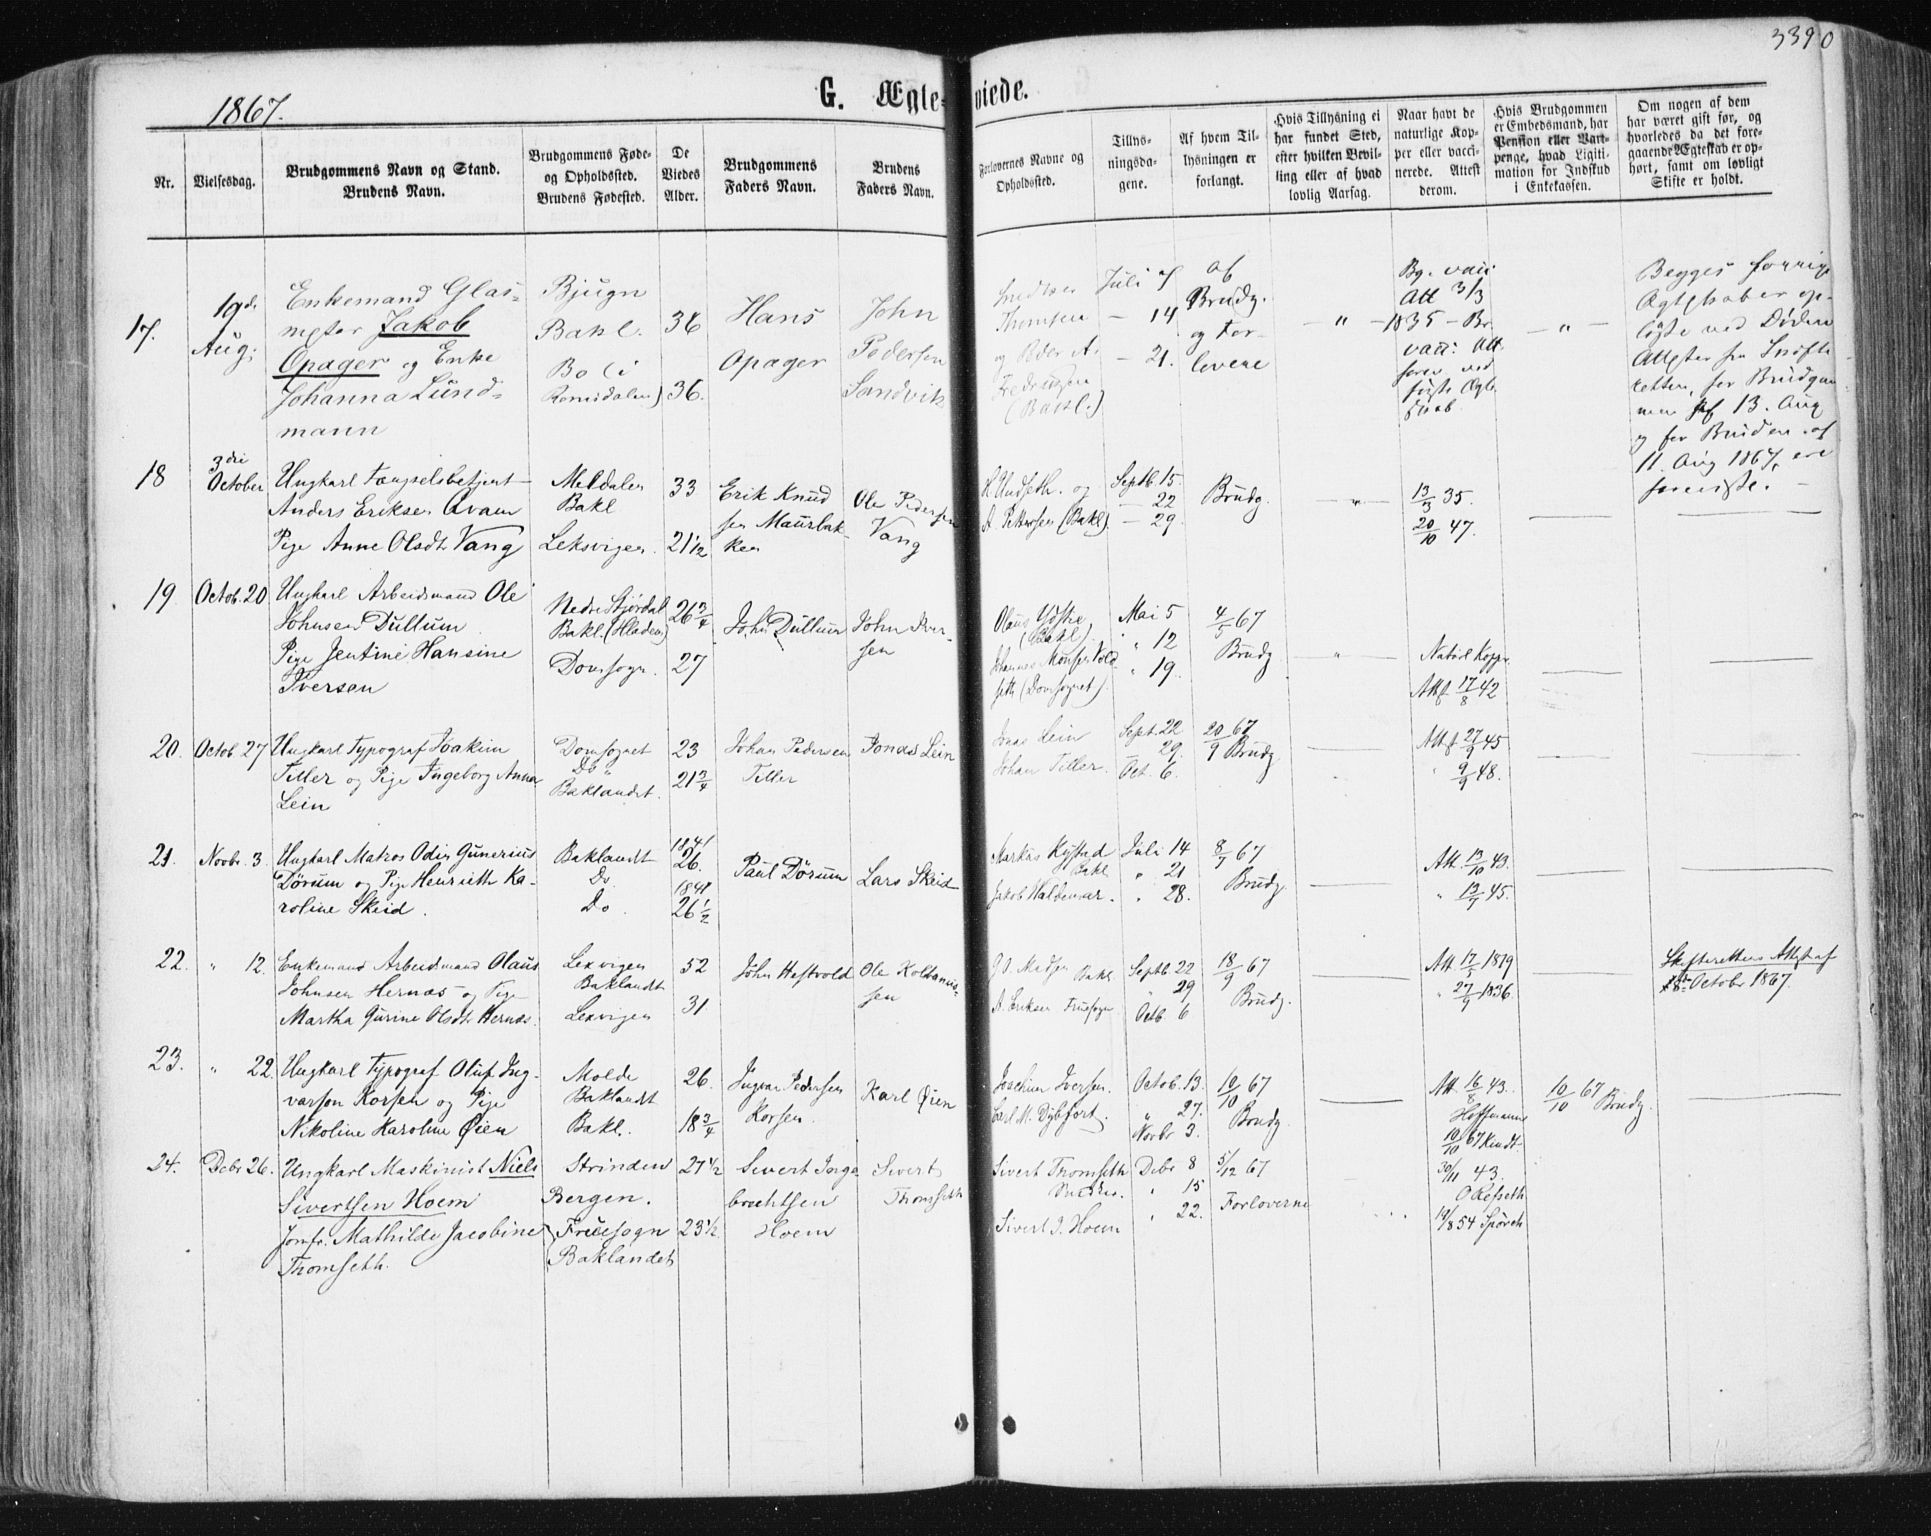 3390
1867.
G. Ægte-viede.
Nr.
Vielsesdag.
Brudgommens Navn og Stand.
Brudens Navn.
Brudgommens Føde-
og Opholdssted.
Brudens Fødested.
De
Viedes
Alder.
Brudgommens
Faders Navn.
Brudens
Faders Navn.
Forlovernes Navne og
Opholdssted.
Tillys-
ningsda-
gene.
Af hvem Til-
lysningen er
forlangt.
Hvis Tillysning ei
har fundet Sted,
efter hvilken Bevil-
ling eller af hvad
lovlig Aarsag.
Naar havt de
naturlige Kop-
per eller vacci-
nerede. Attest
derom.
Hvis Brudgommen
er Embedsmand, har
Pension eller Vart-
penge, hvad Ligiti-
mation for Indskud
i Enkekassen.
Om nogen af dem
har været gift før, og
hvorledes da det fore-
gaaende Ægteskab er op-
hørt, samt om lovligt
Skifte er holdt.
17.
19de
Aug;
Enkemand Glas-
mester Jakob
Opager og Enke
Johanna Lund-
mann
Bjugn
Bakl.
Bo (i
Romsdalen)
36
36.
Hans
Opager
John
Pedersen
Sandvik
Thomsen
og Peder A.
(Bakl.)
Juli 7
— 14
— 21.
af
Brudg.
og For-
lovere
— " —
Bg. vacc:
Att 3/3
1835 – Br.
vacc: Att.
forev. ved
første Ægte
skab.
— " —
Begges forrige
Ægteskaber op-
løste ved Døden
Attester fra Skifte
retten, for Brudgom
men af 13. Aug
og for Bruden af
11. Aug 1867, ere
foreviste. —
18
3die
October
Ungkarl Fængselsbetjent
Anders Eriksen Qvam
Pige Anne Olsdt. Vang
Meldalen
Bakl
Leksvigen.
33
21 1/2
Erik Knud
sen Maurbak-
ken
Ole Pedersen
Vang
H. Undseth. og
A. Pettersen (Bakl)
Septb. 15.
— 22
— 29.
Brudg.
— " —
13/3 35.
20/10 47.
19
Octob. 20
Ungkarl Arbeidsmand Ole
Johnsen Dullum
Pige Jentine Hansine
Iversen
Nedre Stjørdal
Bakl. (Hladen)
Domsogn.
26 3/4
27
John Dullum
John Iver-
sen
(Bakl).
seth (Domsognet).
Mai 5
" 12
" 19
4/5 67
Brudg
"
Naturl Kopp.
Att 17/8 42
20.
Octob. 27
Ungkarl Typograf Joakim
Tiller og Pige Ingeborg Anna
Lein
Domsognet
Do "
Baklandet.
23
21 3/4
Johan Pedersen
Tiller
Jonas Lein
Jonas Lein
Johan Tiller
Sept. 22
29.
Oct. 6.
20/9 67
Brudg
Att 27/9 45
" 9/9 48.
21.
Novbr. 3.
Ungkarl Matros Odin Gunerius
Dørum og Pige Henriette Ka-
roline Skeid.
Baklandt
Do
Do.
1841
26.
1841
26 1/2
Paul Dørum
Lars Skeid
Markus Rystad
Bakl
Jakob Waldemar.
Juli 14
" 21
" 28.
8/7 67
Brudg
Att. 13/10 43.
" 13/7 45.
22.
" 12.
Enkemand Arbeidsmand Olaus
Johnsen Hernæs og Pige
Martha Gurine Olsdt. Hernæs.
Lexvigen
Baklandt
Lexvigen
52
31
John Hestvold
Ole
sen
Bakl
A. Eriksen Fruesogn
Septb 22
" 29
Octb. 6
18/9 67
Brudg.
Att 17/5 1819
" 27/9 1836.
Skifterettens Attest af
October 1867.
23.
" 22.
Ungkarl Typograf Oluf Ing-
varson Korsen og Pige
Nikoline Karoline Øien
Molde
Baklandt
Bakl.
26.
18 3/4
Ingvar Pedersen
Korsen.
Karl Øien
Joachim Iversen.
Carl M. Dybfort.
Octob. 13.
" 27.
Novbr 3.
10/10 67
Brudg
Att 16/8 43.
Hoffmann
10/10 67 Kindt
10/10 67 Brudg.
24.
Debr 26.
Ungkarl Maskinist Niels
Sivertsen Hoem
Jomfr. Mathilde Jacobine
Thomseth.
Strinden
Bergen.
Fruesogn
Baklandet
27 1/2
23 1/2
Sivert Inge
brechtsen
Hoem
Sivert
Thomseth
Sivert Thomseth
Sivert I. Hoem
Debr 8
" 15
" 22.
5/12 67
Forloverne
30/11 43.
O Refseth
19/8 54 Spørch